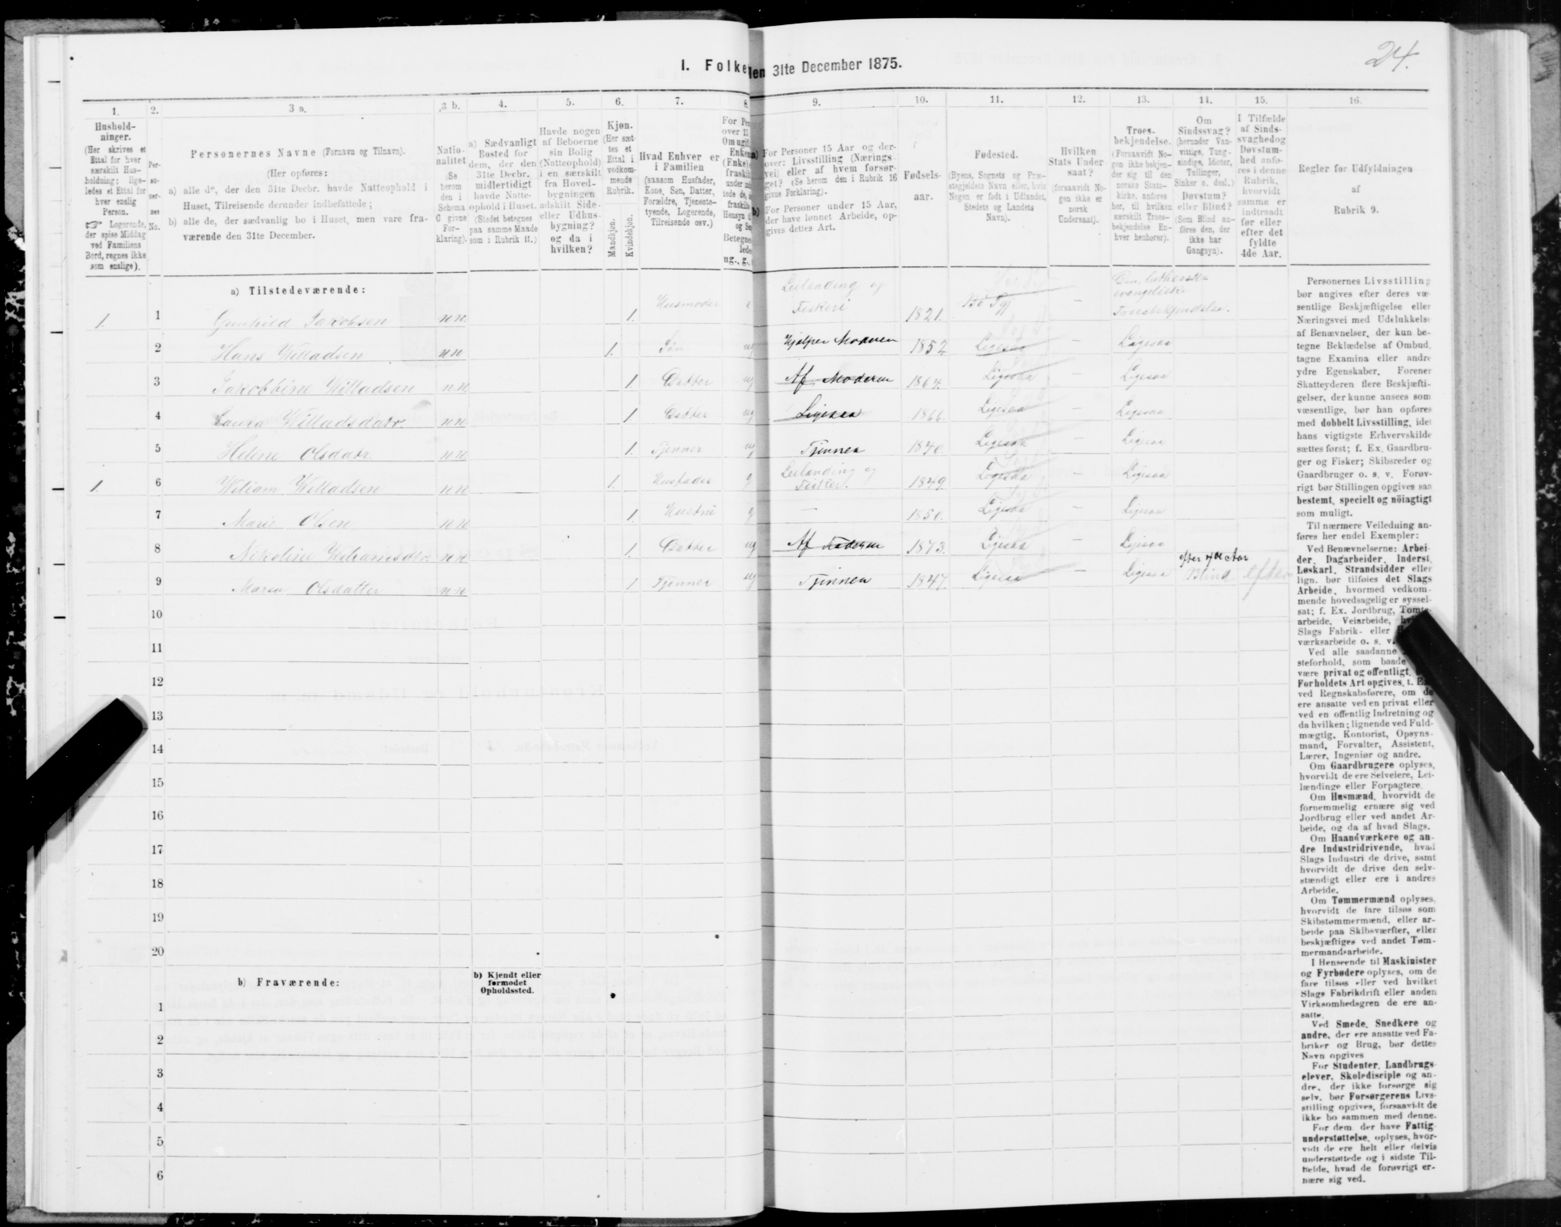 24.
I. Folke
den 31te December 1875.
1.
Hushold-
ninger.
(Her skrives et
Ettal for hver
særskilt Hus-
holdning; lige-
ledes et Ettal for
hver enslig
Person.
☞ Logerende,
der spise Middag
ved Familiens
Bord, regnes ikke
som enslige).
2.
Per-
so-
ner-
nes
No.
3 a.
Personernes Navne (Fornavn og Tilnavn).
(Her opføres:
a) alle de, der den 31te Decbr. havde Natteophold i
Huset, Tilreisende derunder indbefattede;
b) alle de, der sædvanlig bo i Huset, men vare fra-
værende den 31te December.
3 b.
Natio-
nalitet
(Se
herom
den i
Schema
C givne
For-
klaring).
4.
a) Sædvanligt
Bosted for
dem, der den
31te Decbr.
midlertidigt
havde Natte-
ophold i Huset.
(Stedet betegnes
paa samme Maade
som i Rubrik 11.)
5.
Havde nogen
af Beboerne
sin Bolig
(Natteophold)
i en særskilt
fra Hoved-
bygningen
adskilt Side-
eller Udhus-
bygning?
og da i
hvilken?
6.
Kjøn.
(Her sæt-
tes et
Ettal i
vedkom-
mende
Rubrik.
Mandkjøn.
Kvindekjøn.
7.
Hvad Enhver er
i Familien
(saasom Husfader,
Kone, Søn, Datter,
Forældre, Tjeneste-
tyende, Logerende,
Tilreisende osv.)
8.
9.
For Personer 15 Aar og der-
over: Livsstilling (Nærings-
vei) eller af hvem forsør-
get? (Se herom den i Rubrik 16
givne Forklaring).
For Personer under 15 Aar,
der have lønnet Arbeide, op-
gives dettes Art.
10.
Fødsels-
aar.
11.
Fødested.
(Byens, Sognets og Præ-
stegjeldets Navn eller, hvis
Nogen er født i Udlandet,
Stedets og Landets
Navn).
12.
Hvilken
Stats Under-
saat?
(forsaavidt No-
gen ikke er
norsk
Undersaat).
13.
Troes-
bekjendelse.
(Forsaavidt No-
gen ikke bekjen-
der sig til den
norske Stats-
kirke, anføres
her, til hvilken
særskilt Troes-
bekjendelse En-
hver henhører).
14.
Om
Sindssvag?
(herunder Van-
vittige, Tung-
sindige, Idioter,
Tullinger,
Sinker o. desl.)
Døvstum?
eller Blind?
(Som Blind an-
føres den, der
ikke har
Gangsyn).
15.
I Tilfælde
af Sinds-
svaghed og
Døvstum-
hed anfø-
res i denne
Rubrik,
hvorvidt
samme er
indtraadt
før eller
efter det
fyldte
4de Aar.
16.
Regler for Udfyldningen
af
Rubrik 9.
a) Tilstedeværende:
1. 1 Gunhild Jakobsen nn. 1. Husmoder Leilænding og Fiskeri 1821. – Evangelisk
2 Hans Willadsen nn 1. Søn ug Hjælper Moderen 1852 Ligesaa – Ligesaa
3 Jakobbine Willadsen nn 1 Datter ug Af Moderen 1864. Ligesaa – Ligesaa
4 Willadsdatr nn 1 Datter ug Ligesaa 1866 Ligesaa – Ligesaa
5 Helene Olsdatr nn 1. Tjenner ug Tjenner 1840. Ligesaa – Ligesaa
1. 6 Wiliam Willadsen nn 1. Husfader g Leilænding og Fisker 1849. Ligesaa – Ligesaa
7 Marie Olsen nn 1 Hustru g – 1850. Ligesaa – Ligesaa
8 nn 1. Datter ug Af Faderen 1873. Ligesaa – Ligesaa
9 Olsdatter nn 1 Tjenner ug Tjenner 1847. Ligesaa – Ligesaa efter 4de Aar Blind
10
11
12
13
14
15
16
17
18
19
20
b) Fraværende:
b) Kjendt eller
formodet
Opholdssted.
1
2
3
4
5
6
Personernes Livsstilling
bør angives efter deres væ-
sentlige Beskjæftigelse eller
Næringsvei med Udelukkelse
af Benævnelser, der kun be-
tegne Beklædelse af Ombud,
tagne Examina eller andre
ydre Egenskaber. Forener
Skatteyderen flere Beskjæfti-
gelser, der kunne ansees som
væsentlige, bør han opføres
med dobbelt Livsstilling, idet
hans vigtigste Erhvervskilde
sættes først; f. Ex. Gaardbru-
ger og Fisker; Skibsreder og
Gaardbruger o. s. v. Forøv-
rigt bør Stillingen opgives saa
bestemt, specielt og nöiagtigt
som muligt.
Til nærmere Veiledning an-
føres her endel Exempler:
Ved Benævnelserne: Arbei-
der, Dagarbeider, Inderst,
Løskarl, Strandsidder eller
lign. bør tilføies det Slags
Arbeide, hvormed vedkom-
mende hovedsagelig er syssel-
sat; f. Ex. Jordbrug, Tomte-
arbeide, Veiarbeide,
Slags Fabrik- eller
værksarbeide o. s. v.
Ved alle saadanne
steforhold, som baade
være privat og offentligt,
Forholdets Art opgives, t. Ex.
ved Regnskabsførere, om de
ere ansatte ved en privat eller
ved en offentlig Indretning og
da hvilken; lignende ved Fuld-
mægtig, Kontorist, Opsyns-
mand, Forvalter, Assistent,
Lærer, Ingeniør og andre.
Om Gaardbrugere oplyses,
hvorvidt de ere Selveiere, Lei-
lændinge eller Forpagtere.
Om Husmænd, hvorvidt de
fornemmelig ernære sig ved
Jordbrug eller ved andet Ar-
beide, og da af hvad Slags.
Om Haandværkere og an-
dre Industridrivende, hvad
Slags Industri de drive, samt
hvorvidt de drive den selv-
stændigt eller ere i andres
Arbeide.
Om Tømmermænd oplyses,
hvorvidt de fare tilsøs som
Skibstømmermænd, eller ar-
beide paa Skibsværfter, eller
beskjæftiges ved andet Tøm-
mermandsarbeide.
I Henseende til Maskinister
og Fyrbødere oplyses, om de
fare tilsøs eller ved hvilket
Slags Fabrikdrift eller anden
Virksomhedsgren de ere an-
satte.
Ved Smede, Snedkere og
andre, der ere ansatte ved Fa-
briker og Brug, bør dettes
Navn opgives
For Studenter, Landbrugs-
elever, Skoledisciple og an-
dre, der ikke forsørge sig
selv, bør Forsørgerens Livs-
stilling opgives, forsaavidt de
ikke bo sammen med denne.
For dem, der have Fattig-
understøttelse, oplyses, hvor-
vidt de ere helt eller delvis
understøttede og i sidste Til-
fælde, hvad de forøvrigt er-
nære sig ved.